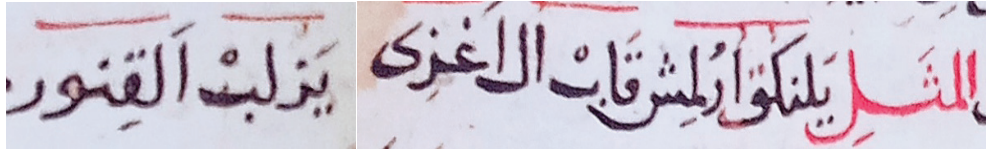 المثَلِ يَلنكقو اُرُلمِش قَابْ ال اَغْزِى يَزلبْ اَلقِنور